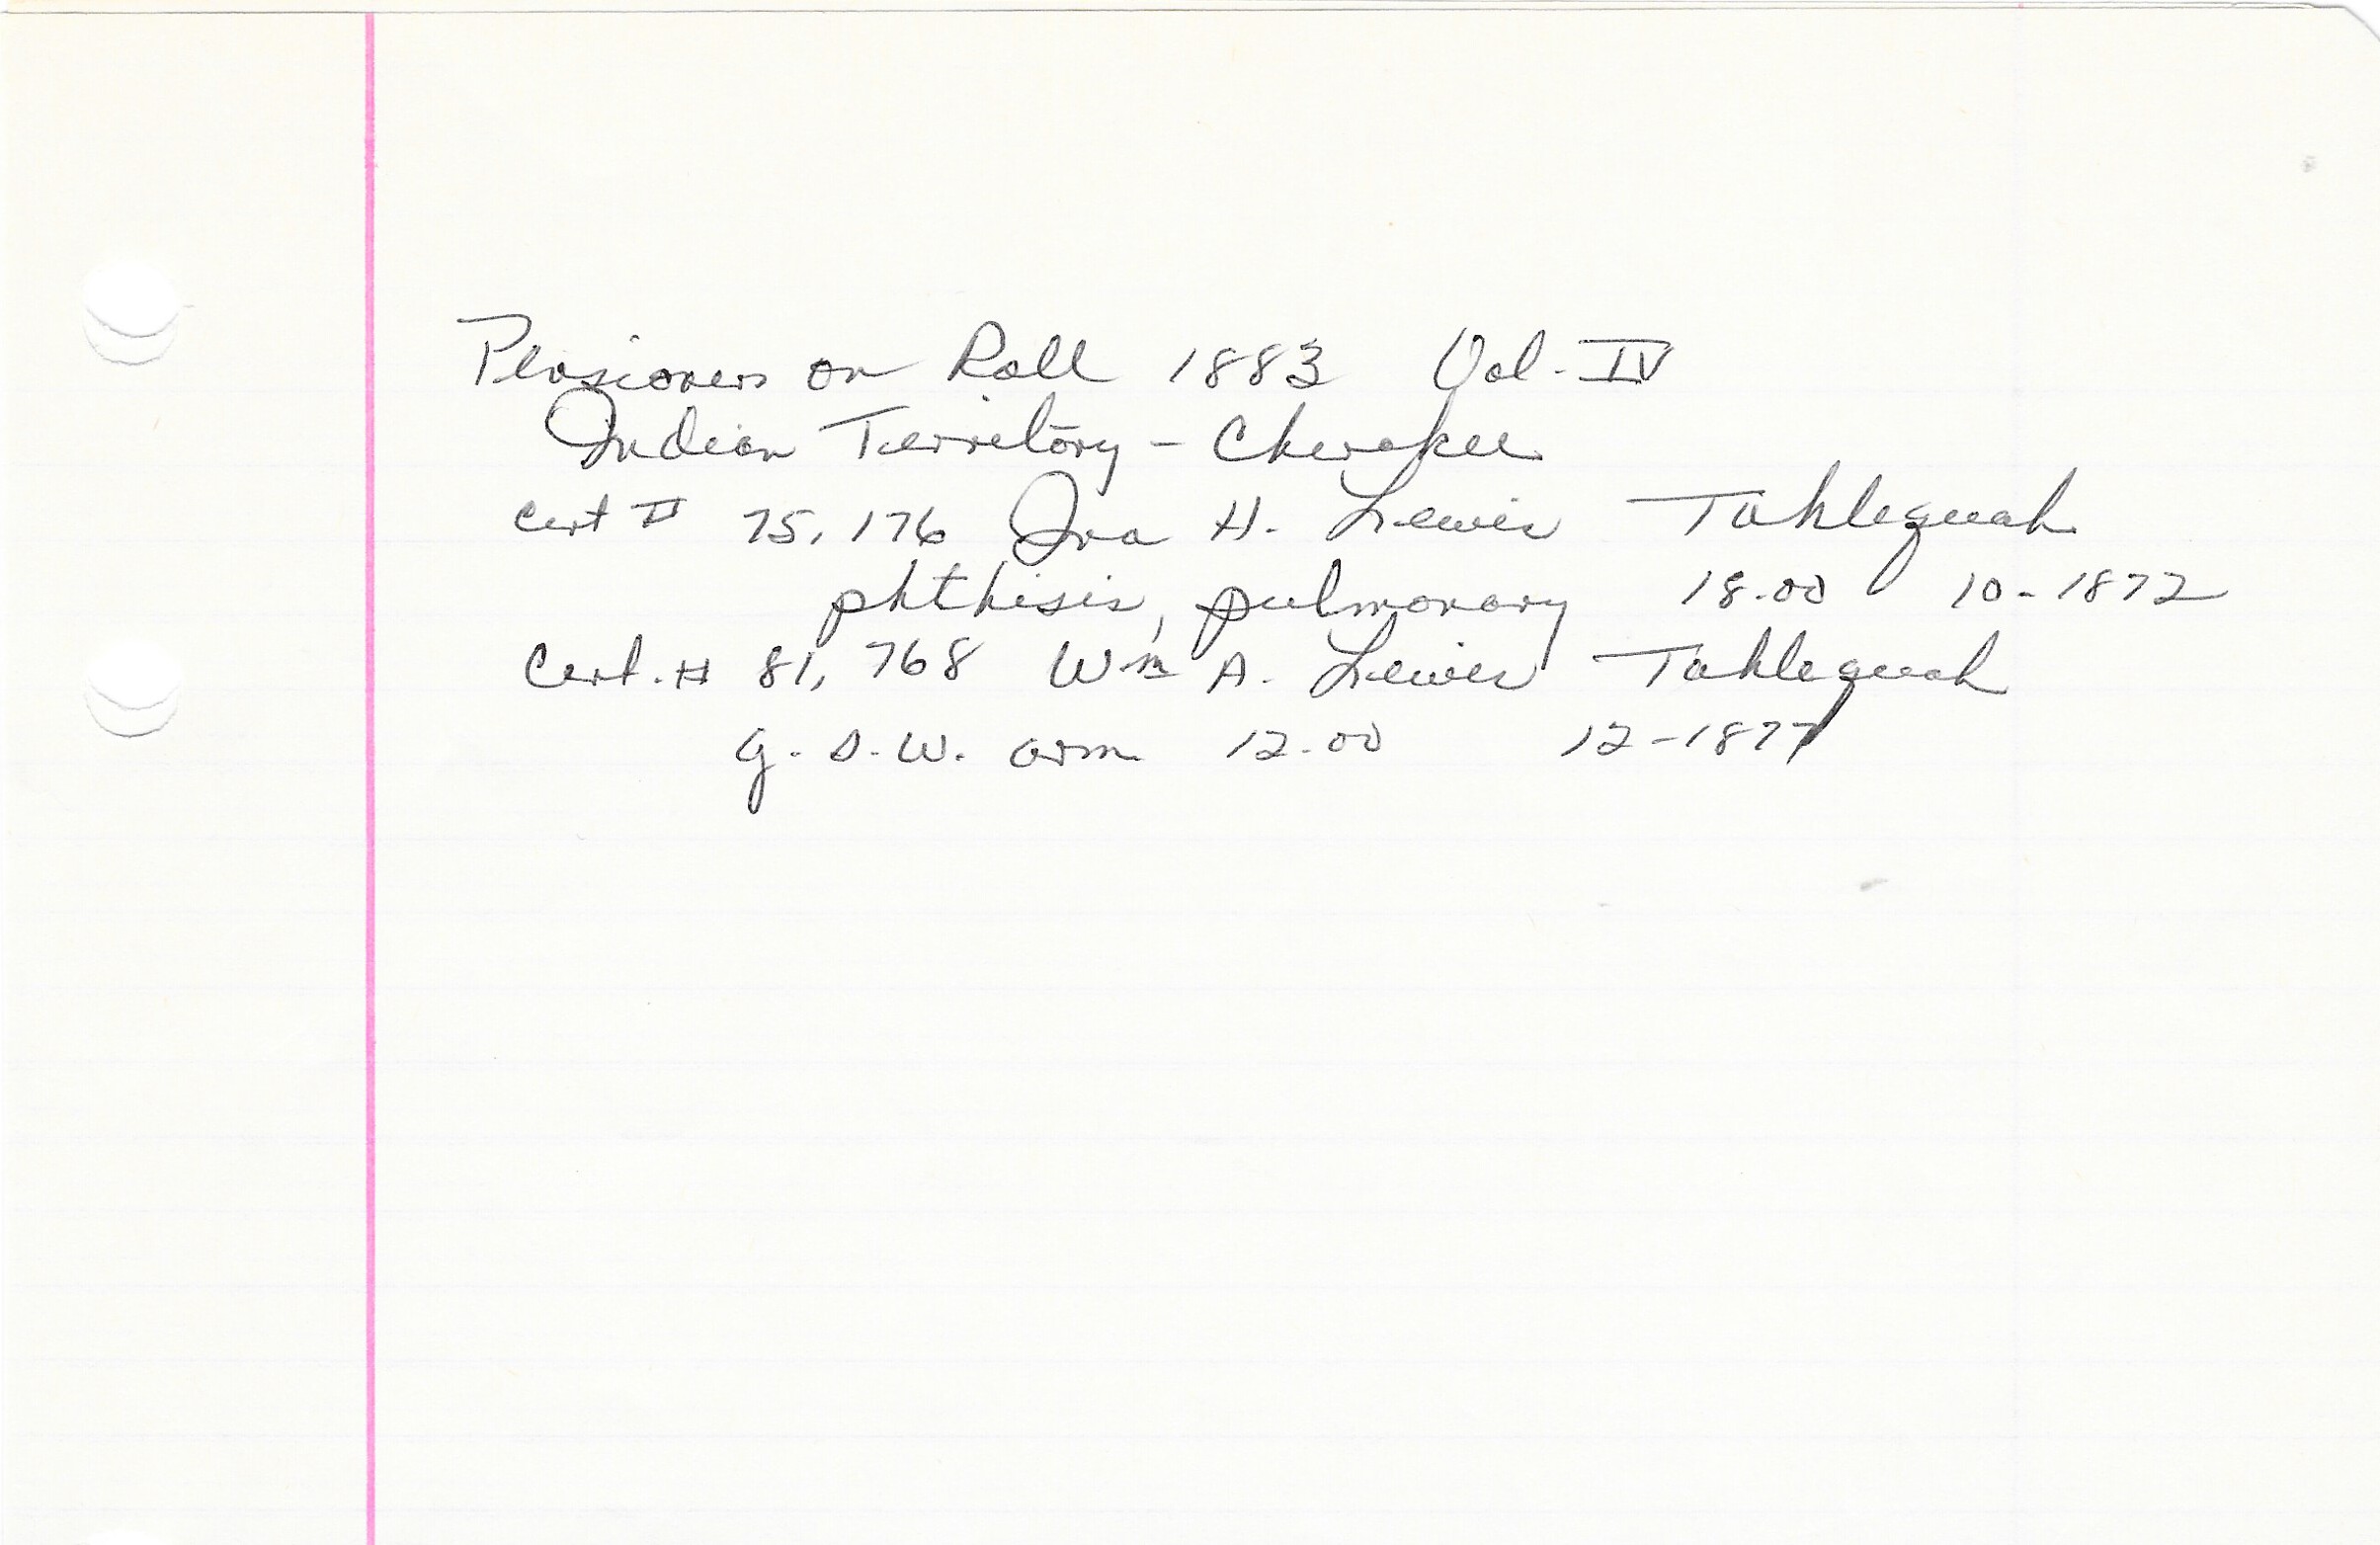 Pensioners on Roll 1883 Vol. IV
Indian Territory - Cherokee
Cert # 75,176 Ira H. Lewis Tahlequah
phthisis, pulmonary 18.00 10-1872
Cert. # 81,768 Wm A. Lewis Tahlequah
g. s. w. arm 12.00 12-1877